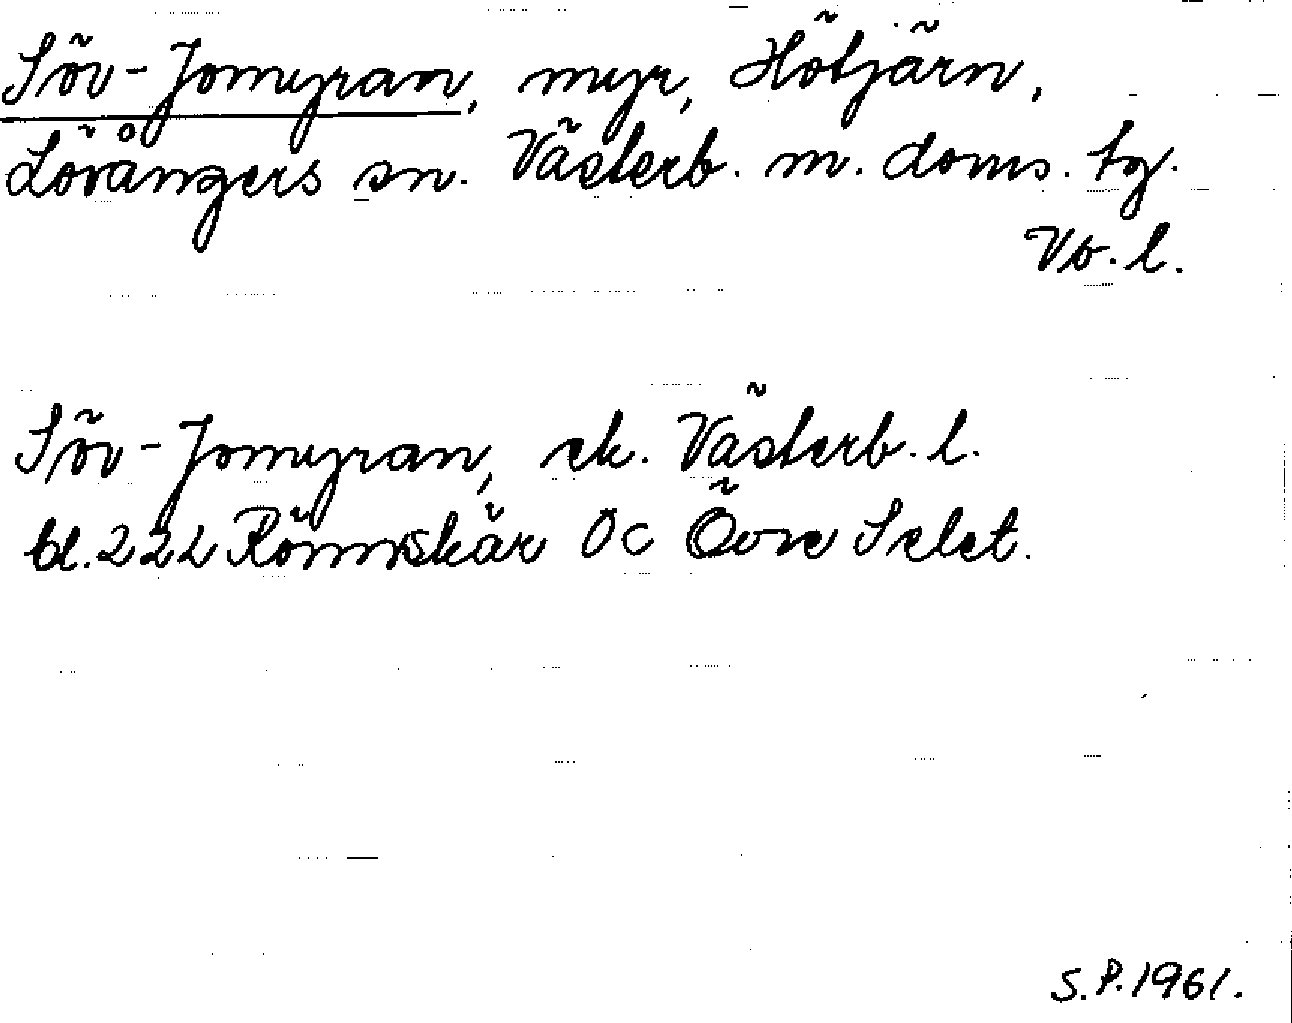 Söv-Jomyran, myr, Hötjärn,
Lövångers sn. Västerb. m. doms. tg.
Vb. l.
Söv-Jomyran, ek. Västerb. l.
bl. 222 Rönnskär Öc Övre Selet.
S.P. 1961.